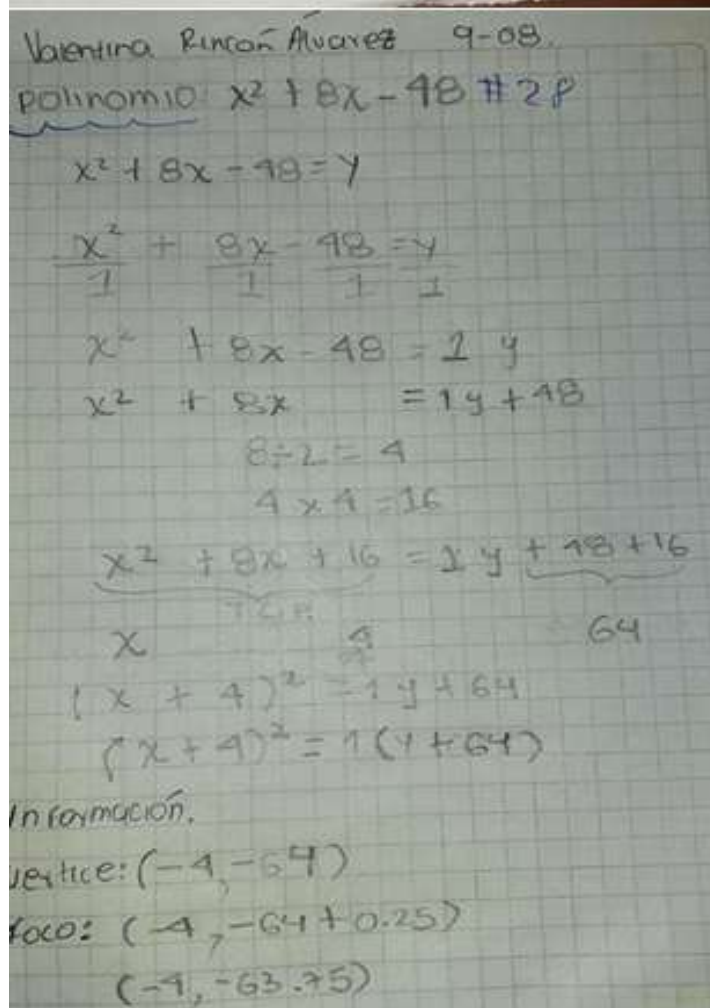 Valentina Rincón Álvarez 9-08.
polinomio x² + 8x - 48 #28
x² + 8x - 48 = y
x²/1 + 8x/1 - 48/1 = y/1
x² + 8x - 48 = 1 y
x² + 8x = 1y + 48
8÷2 = 4
4 x 4 = 16
x² + 8x + 16 = 1 y + 48 + 16
x 4 64
(x + 4)² = 1y + 64
(x + 4)² = 1(y + 64)
Información.
vertice: (-4, -64)
foco: (-4, -64 + 0.25)
(-4, -63.75)